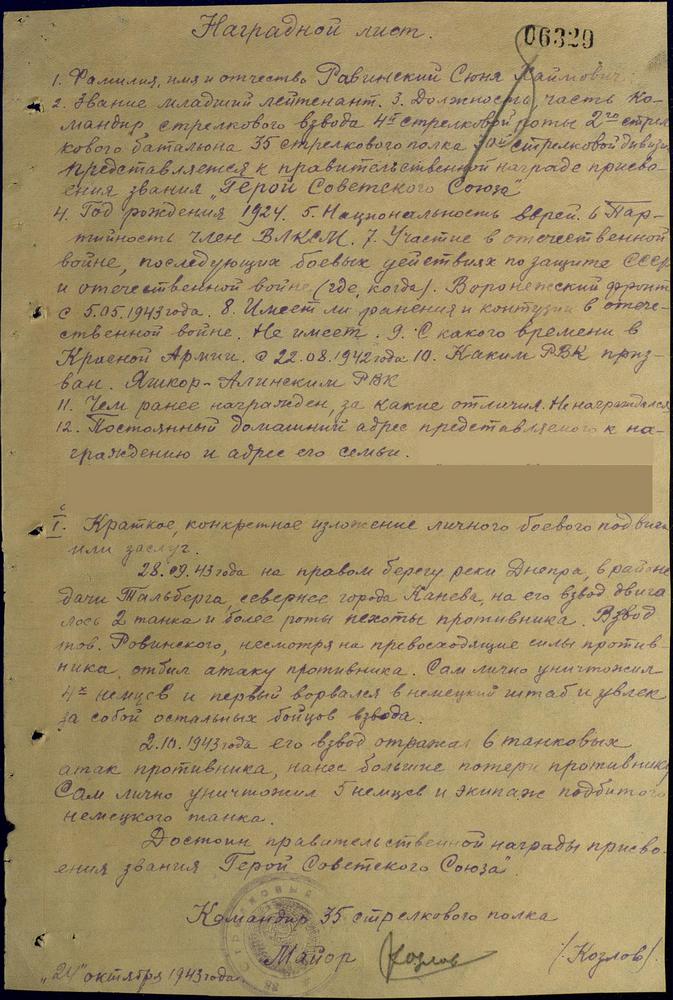 Наградной лист.
06329
1. Фамилия, имя и отчество Равинский Сюня Хаймович.
2. Звание младший лейтенант. 3. Должность, часть Ко-
мандир стрелкового взвода 4й стрелковой роты 2го стрел-
кового баталиона 35 стрелкового полка стрелковой дивизи
представляется к правительственной награде присво-
ения звания "Герой Советского Союза"
4. Год рождения 1924. 5. Национальность еврей. 6 Пар-
тийность член ВЛКСМ. 7. Участие в отечественной
войне, последующих боевых действиях по защите СССР
и отечественной войне (где, когда). Воронежский фронт
с 5.05.1943 года. 8. Имеет ли ранения и контузии в отече-
ственной войне. Не имеет. 9. С какого времени в
Красной Армии. с 22.08.1942 года 10. Каким РВК приз-
ван. Яшкор-Алинским РВК
11. Чем ранее награжден, за какие отличия. Не награждался
12. Постоянный домашний адрес представляемого к на-
граждению и адрес его семьи.
I. Краткое, конкретное изложение личного боевого подвига
или заслуг.
28.09.43 года на правом берегу реки Днепра, в районе
дачи Тальберга, севернее города Канева, на его взвод двига
лось 2 танка и более роты пехоты противника. Взвод
тов. Ровинского, несмотря на превосходящие силы против-
ника, отбил атаку противника. Сам лично уничтожил
4х немцев и первый ворвался в немецкий штаб и увлек
за собой остальных бойцов взвода.
2.10.1943 года его взвод отражал 6 танковых
атак противника, нанес большие потери противнику
Сам лично уничтожил 5 немцев и экипаж подбитого
немецкого танка.
Достоин правительственной награды присво-
ения звания "Герой Советского Союза".
Командир 35 стрелкового полка
Майор Козлов /Козлов/.
"24" октября 1943 года.